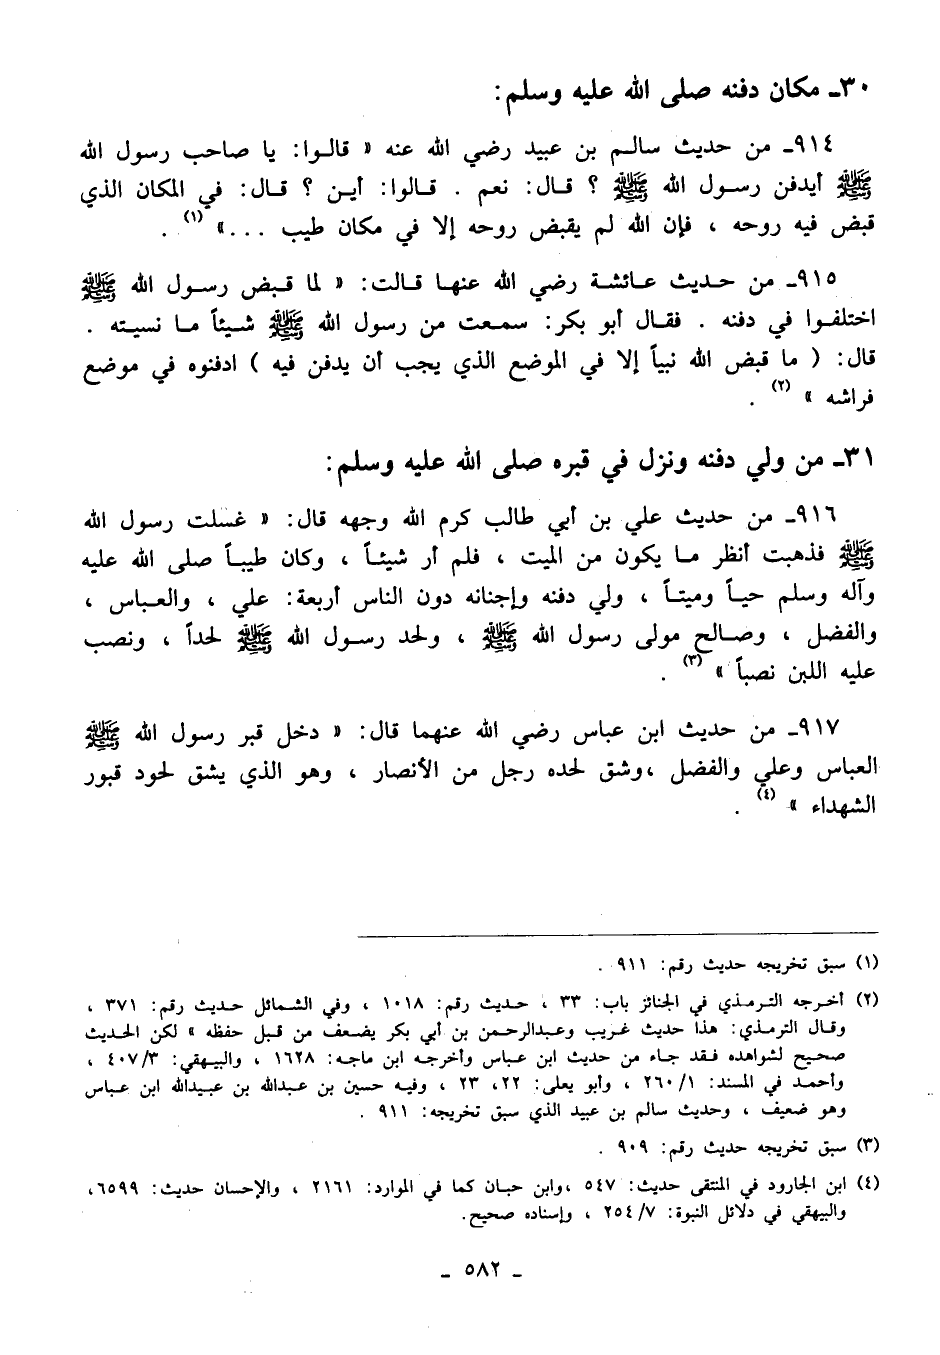 ٣٠ـ مكان دفنه صلى الله عليه وسلم:
٩١٤ـ من حديث سالم بن عبيد رضي الله عنه « قالوا: يا صاحب رسول الله
ﷺ أيدفن رسول الله ﷺ ؟ قال: نعم . قالوا: أين ؟ قال: في المكان الذي
قبض فيه روحه ، فإن الله لم يقبض روحه إلا في مكان طيب ...» (١) .
٩١٥ـ من حديث عائشة رضي الله عنها قالت: « لما قبض رسول الله ﷺ
اختلفوا في دفنه . فقال أبو بكر: سمعت من رسول الله ﷺ شيئاً ما نسيته .
قال: ( ما قبض الله نبياً إلا في الموضع الذي يجب أن يدفن فيه ) ادفنوه في موضع
فراشه » (٢) .
٣١ـ من ولي دفنه ونزل في قبره صلى الله عليه وسلم:
٩١٦ـ من حديث علي بن أبي طالب كرم الله وجهه قال: « غسلت رسول الله
ﷺ فذهبت أنظر ما يكون من الميت ، فلم أر شيئاً ، وكان طيباً صلى الله عليه
وآله وسلم حياً وميتاً ، ولي دفنه وإجنانه دون الناس أربعة: علي ، والعباس ،
والفضل ، وصالح مولى رسول الله ﷺ ، ولحد رسول الله ﷺ لحداً ، ونصب
عليه اللبن نصباً » (٣) .
٩١٧ـ من حديث ابن عباس رضي الله عنهما قال: « دخل قبر رسول الله ﷺ
العباس وعلي والفضل ،وشق لحده رجل من الأنصار ، وهو الذي يشق لحود قبور
الشهداء » (٤) .
(١) سبق تخريجه حديث رقم: ٩١١ .
(٢) أخرجه الترمذي في الجنائز باب: ٣٣ ، حديث رقم: ١٠١٨ ، وفي الشمائل حديث رقم: ٣٧١ ،
وقال الترمذي: هذا حديث غريب وعبدالرحمن بن أبي بكر يضعف من قبل حفظه » لكن الحديث
صحيح لشواهده فقد جاء من حديث ابن عباس وأخرجه ابن ماجه: ١٦٢٨ ، والبيهقي: ٤٠٧/٣ ،
وأحمد في المسند: ٢٦٠/١ ، وأبو يعلى: ٢٢، ٢٣ ، وفيه حسين بن عبدالله بن عبيدالله ابن عباس
وهو ضعيف ، وحديث سالم بن عبيد الذي سبق تخريجه: ٩١١ .
(٣) سبق تخريجه حديث رقم: ٩٠٩ .
(٤) ابن الجارود في المنتقى حديث: ٥٤٧ ،وابن حبان كما في الموارد: ٢١٦١ ، والإحسان حديث: ٦٥٩٩،
والبيهقي في دلائل النبوة: ٢٥٤/٧ ، وإسناده صحيح.
ـ ٥٨٢ ـ